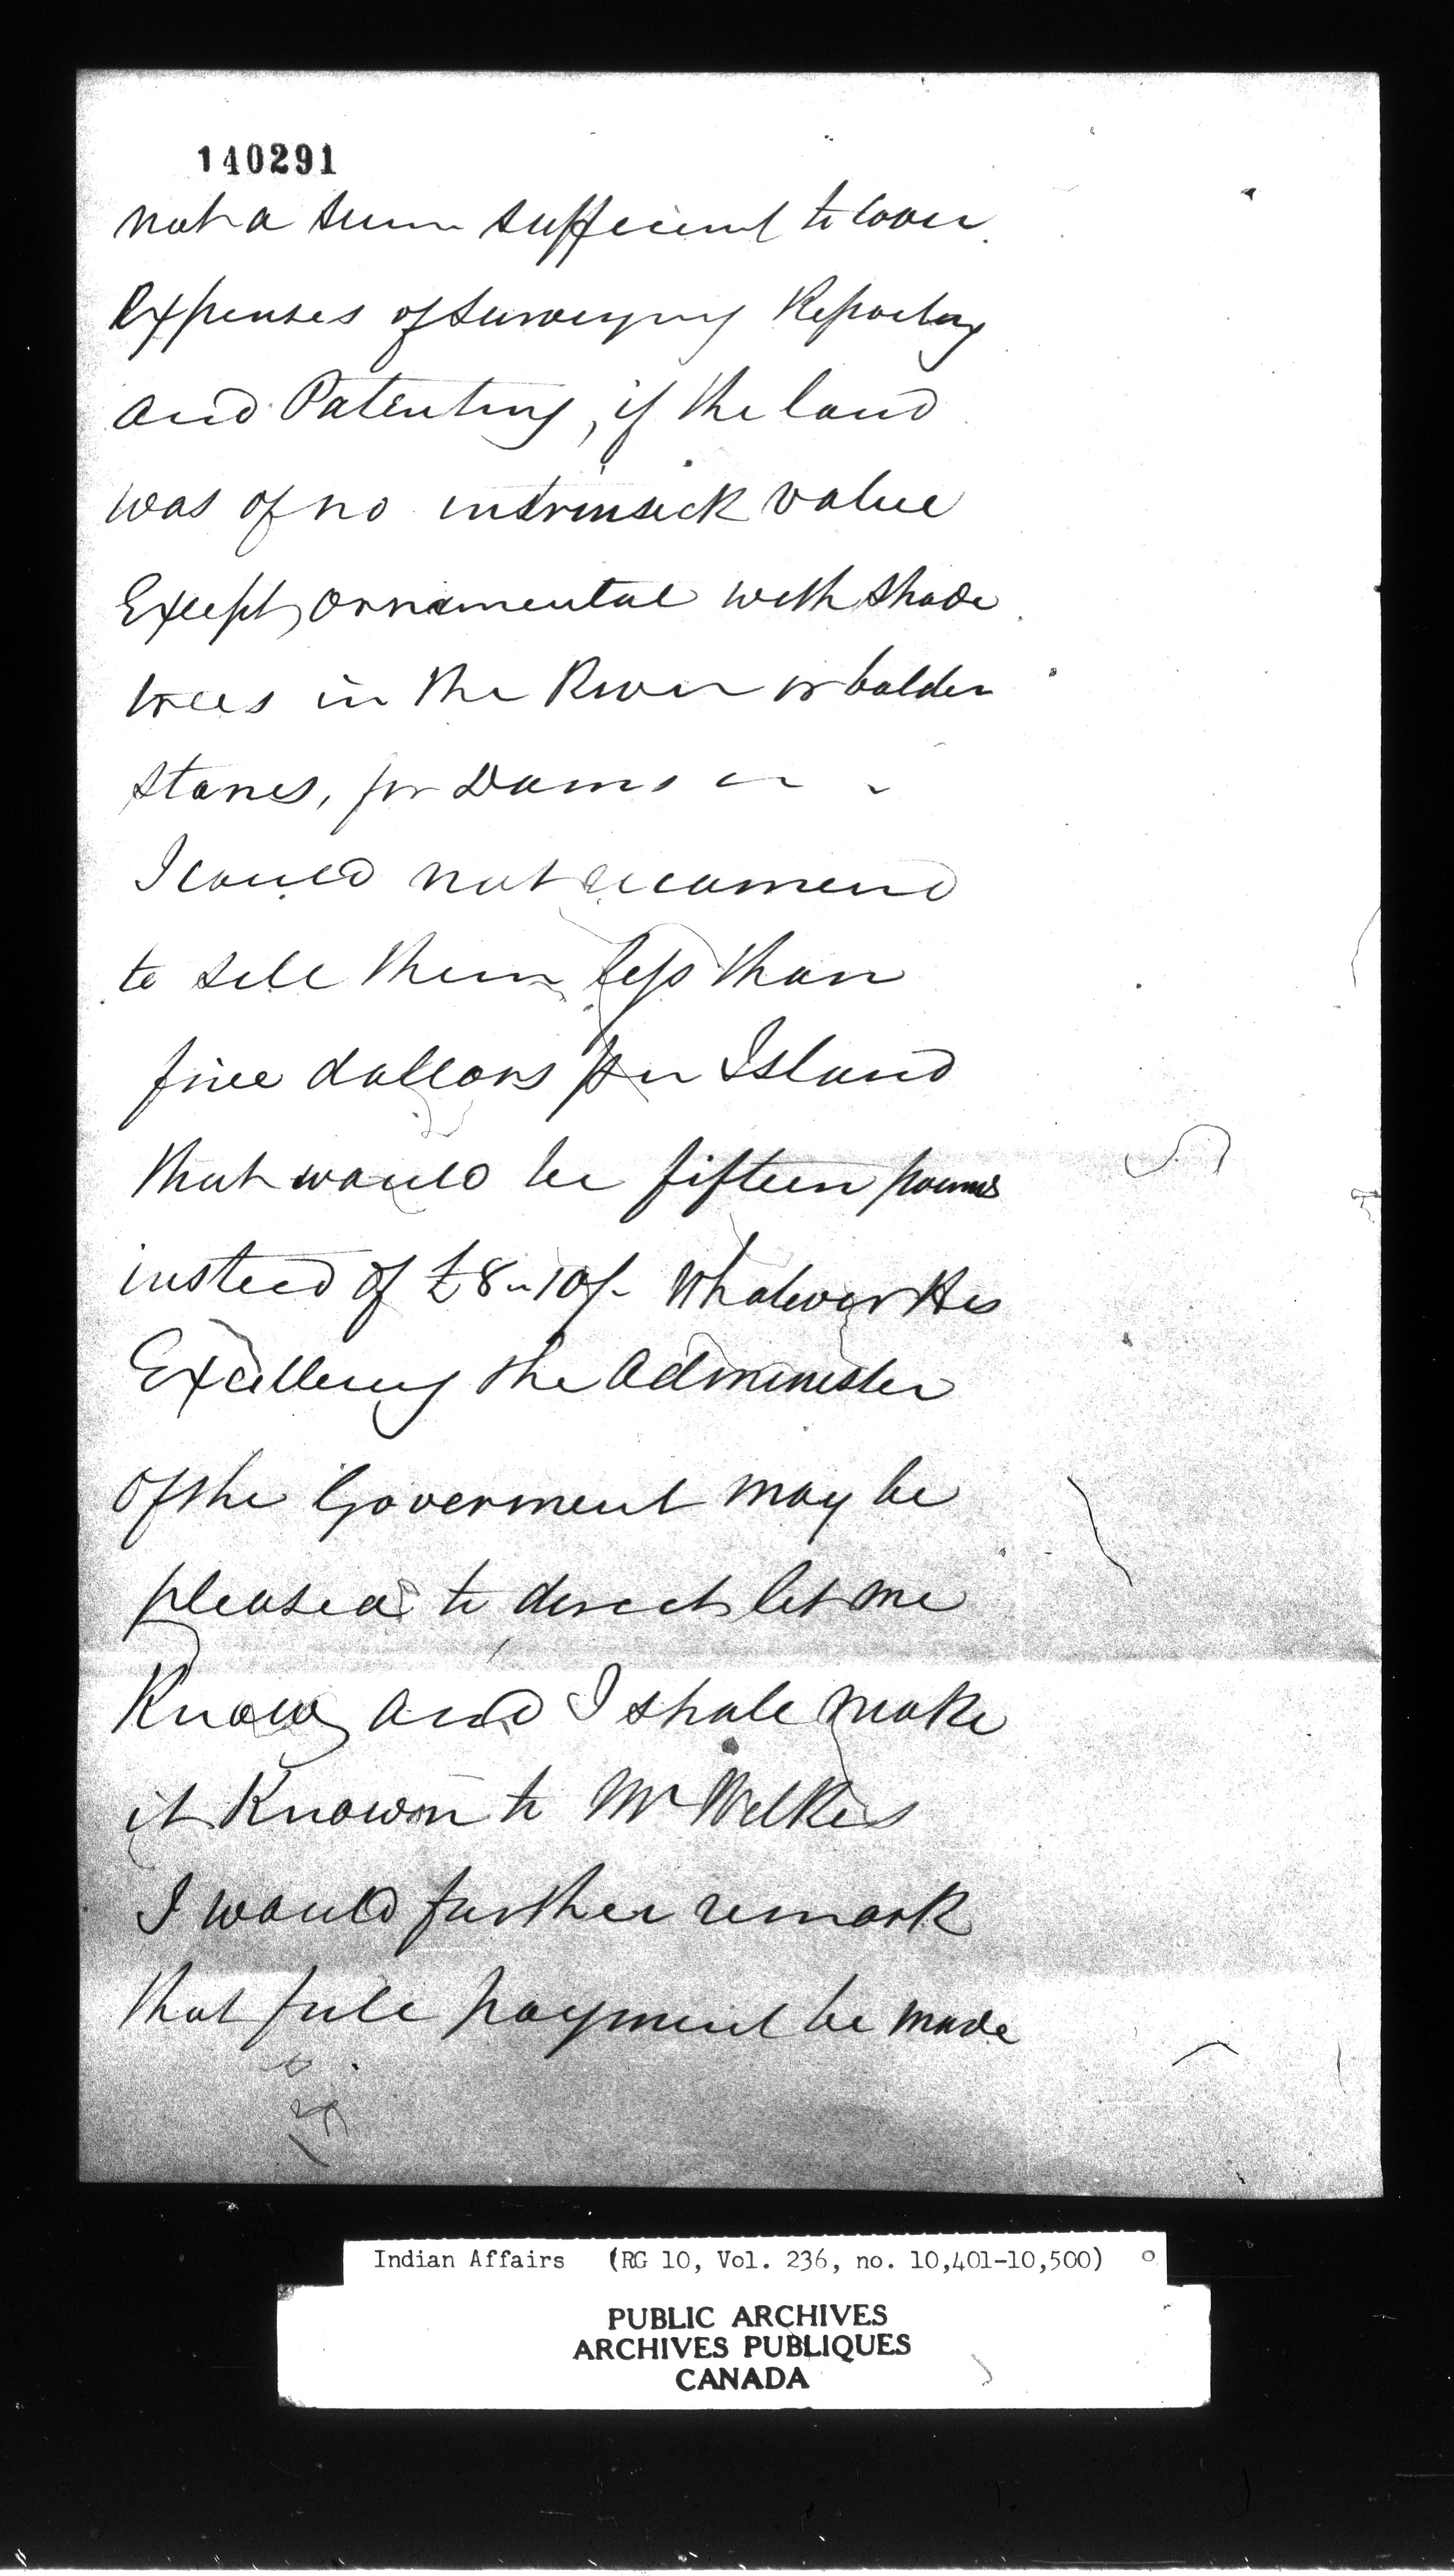 140291
not a sum sufficient to cover
Expenses of Surveying Reporting
and Patenting, if the land
was of no intrinsick value
Except, ornamental with shade
trees in the River or bolder
stones, for Dams
I could not recomend
to sell them less than
five dollars per Island
that would be fifteen pounds
instead of £8-10/- Whatever His
Excellency the Administer
of the Goverment may be
pleased to direct let me
Know, and I shall make
it Known to Mr Wilkes
I would further remark
that full payment be made
Indian Affairs (RG 10, Vol. 236, no. 10,401-10,500)
PUBLIC ARCHIVES
ARCHIVES PUBLIQUES
CANADA